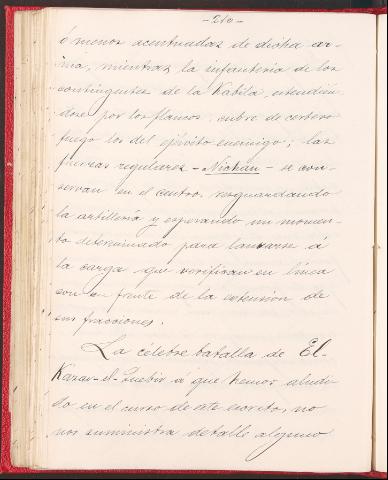 -210-
ó menos acentuadas de dicha ar-
ma, mientras la infantería de los
contingentes de la Kábila, estendien
dose por los flancos, cubre de certero
fuego los del ejército enemigo; las
fuerzas regulares - Niohan - se con-
servan en el centro, resguardando
la artillería y esperando un momen-
to determinado para lanzarse á
la carga que verifican en línea
con un frente de la estension de
sus fracciones.
La célebre batalla de El-
Kazar-el-Quebir á que hemos aludi-
do en el curso de este escrito, no
nos suministra detalle alguno